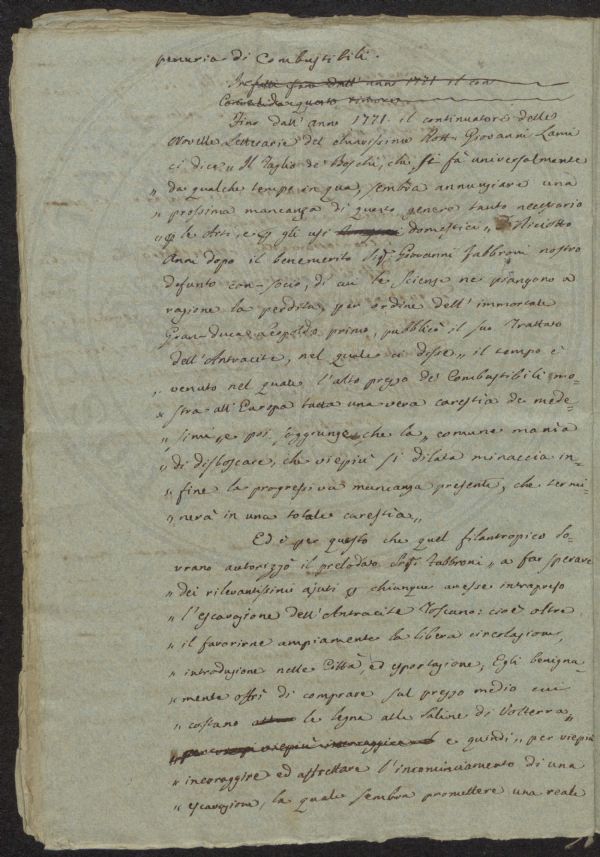 penuria di Combustibili.
Infatti fino dall'anno 1771 il con
Fino dall'anno 1771. il continuatore delle
Novelle Letterarie del chiarissimo Dott. Giovanni Lami
ci dice „ Il Taglio de' Boschi, che si fà universalmente
„ da qualche tempo in qua, sembra annunziare una
„ prossima mancanza di questo genere tanto necessario
„ p le Arti, e p gli usi domestici „ Diciotto
Anni dopo il benemerito Sig. Giovanni Fabbroni nostro
defunto con-socio, di cui le Scienze ne piangono a
ragione la perdita, per ordine dell'immortale
Gran-duca Leopoldo primo, pubblicò il suo Trattato
dell'Antracite, nel quale ci disse „ il tempo è
„ venuto nel quale l'alto prezzo de' Combustibili mo-
„ stra all'Europa tutta una vera carestia de mede-
„ simi „ e poi soggiunge che la „ comune manìa
„ di disboscare, che viepiù si dilata minaccia in-
„ fine la progressiva mancanza presente, che termi-
„ nerà in una totale carestìa „
Ed è per questo che quel filantropico So-
vrano autorizzò il prelodato Sig. Fabbroni „ a far sperare
„ dei rilevantissimi ajuti p chiunque avesse intrapreso
„ l'escavazione dell'Antracite Toscano: cioè oltre
„ il favorirne ampiamente la libera circolazione,
„ introduzione nelle Città, ed esportazione, Egli benigna-
„ mente offrì di comprare sul prezzo medio cui
„ costano le legna alle Saline di Volterra „
e quindi „ per viepiù
„ incoraggire ed affrettare l'incominciamento di una
„ escavazione, la quale sembra promettere una reale